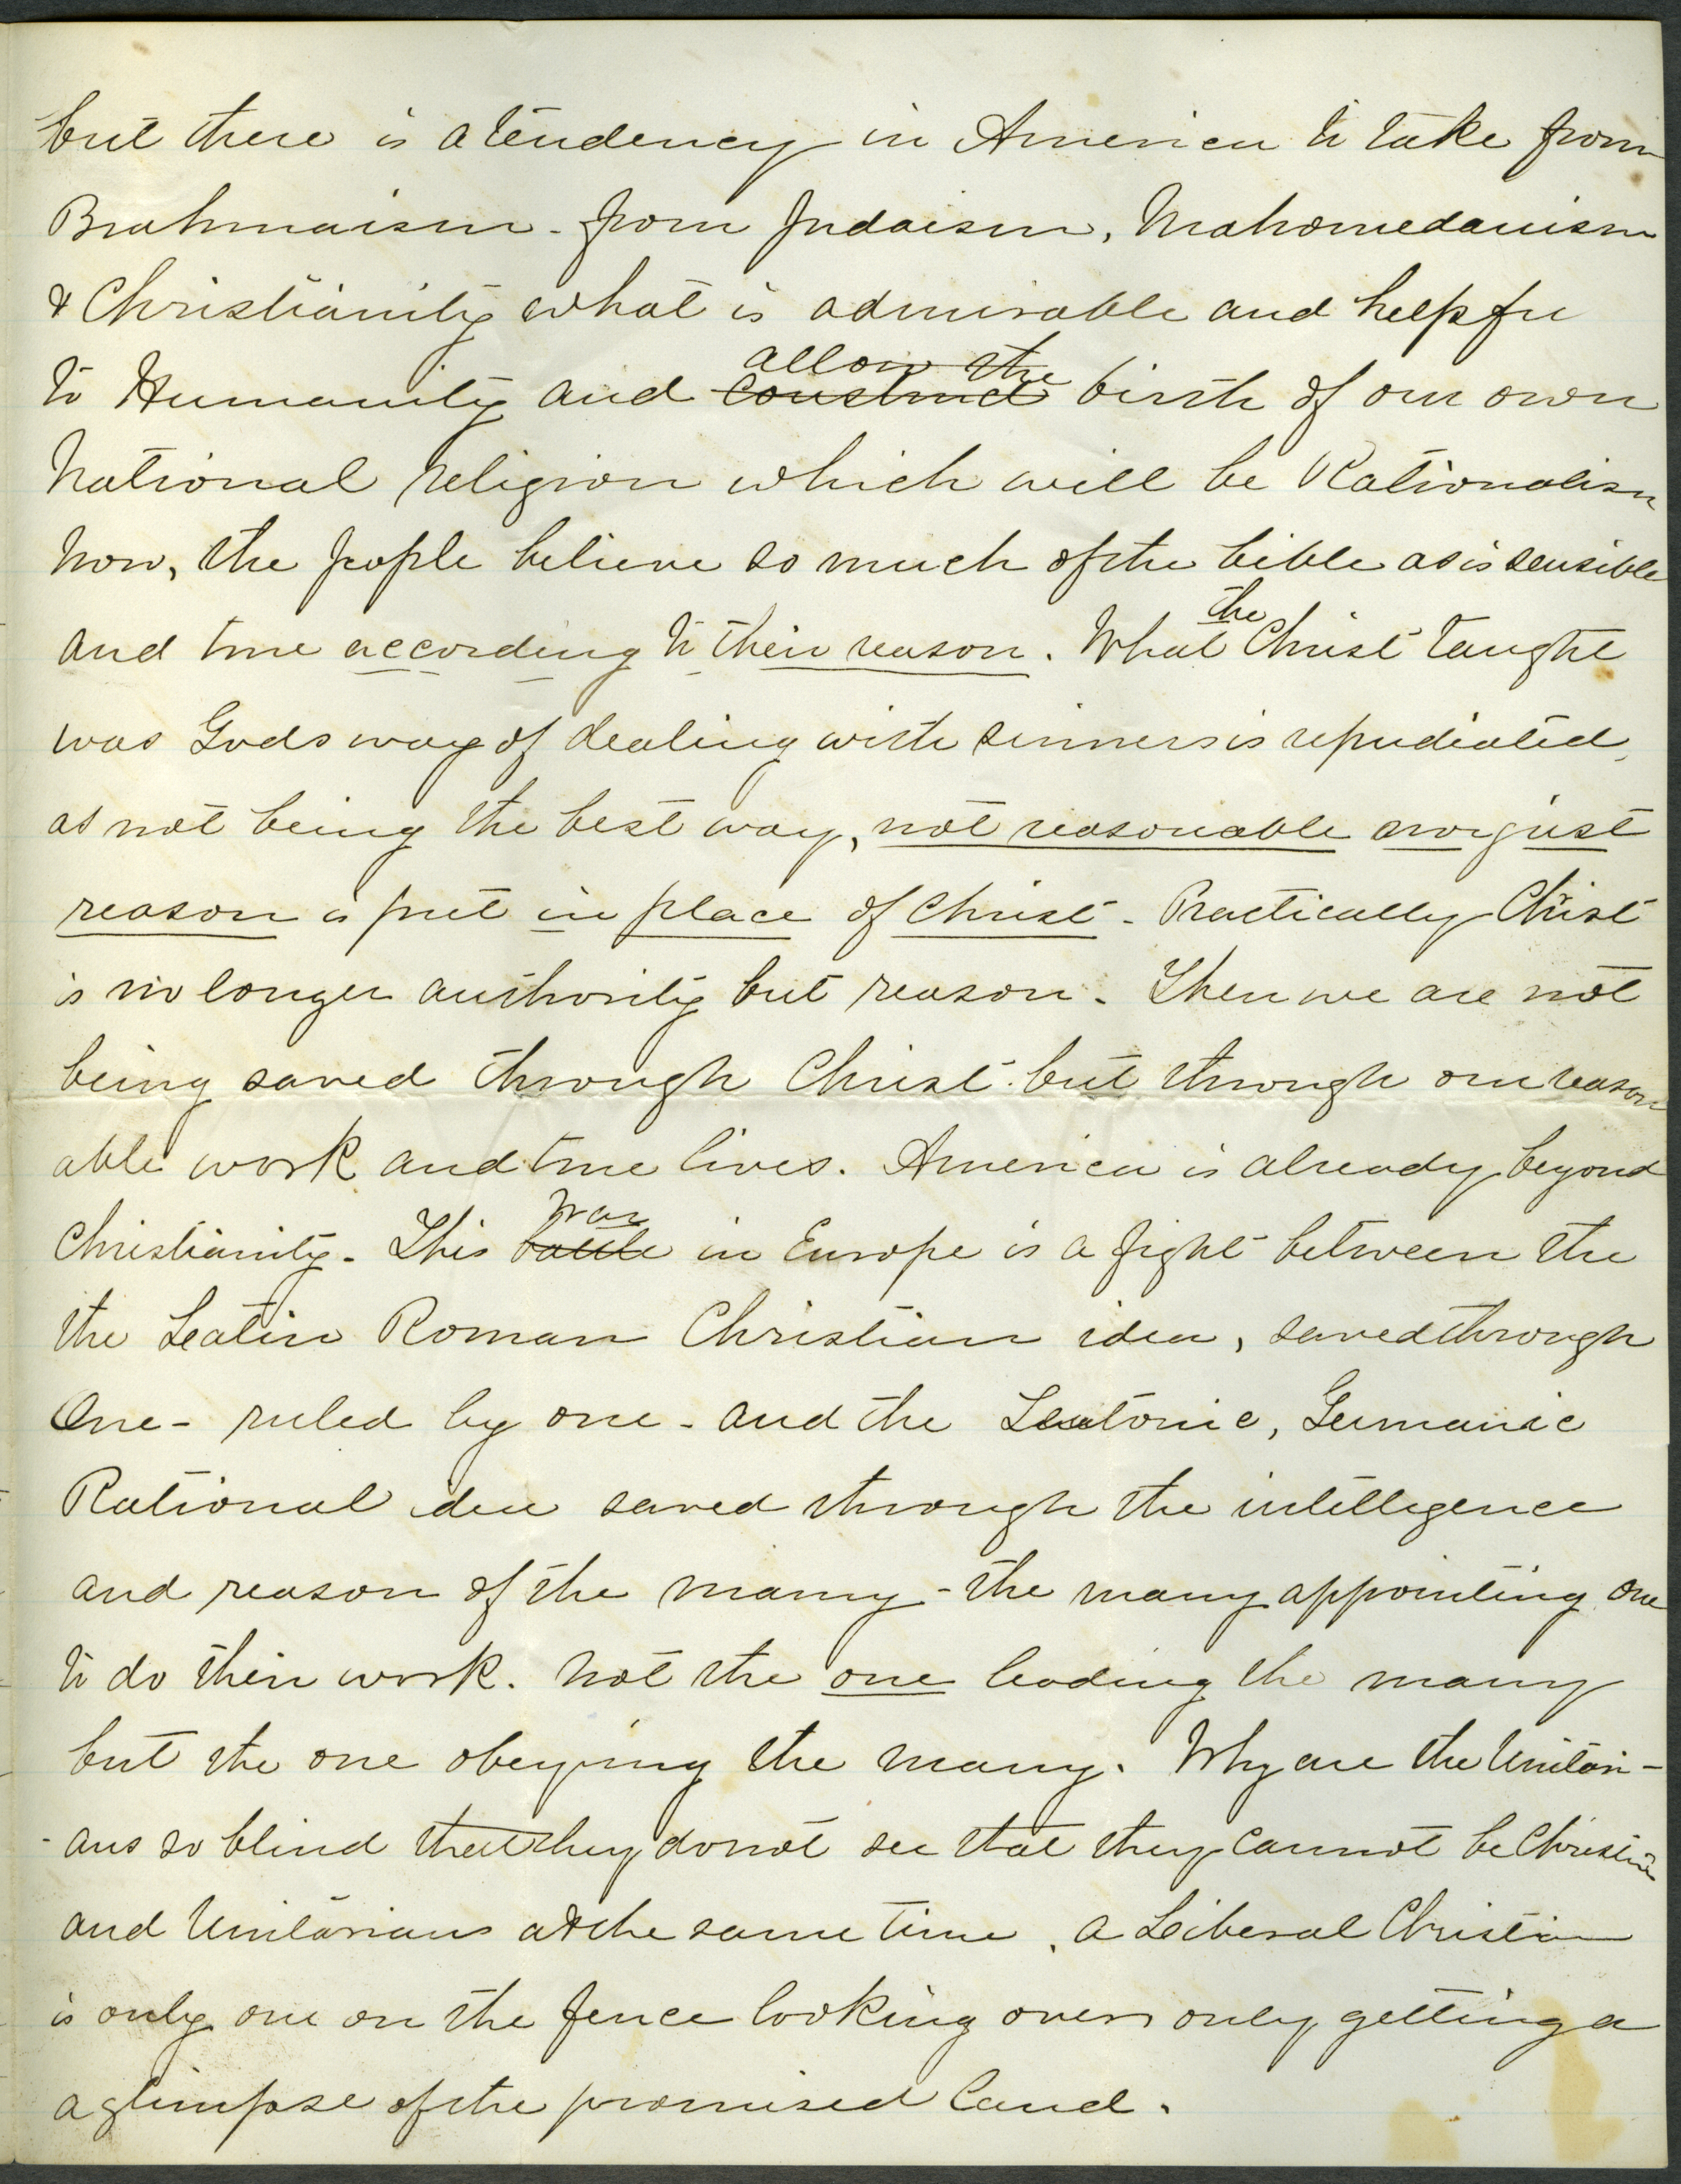 but there is a tendency in America to take from
Brahmaism - from Judaism, Mahomedanism
& Christianity what is admirable and helpfu
to Humanity and construct allow the birth of our own
National religion which will be Rationalism
Now, the people believe so much of the bible as is sensible
and true according to their reason. What the Christ taught
was Gods way of dealing with sinners is repudiated,
as not being the best way, not reasonable nor just
reason is put in place of Christ - Practically Christ
is no longer authority but reason. Then we are not
being saved through Christ but through our reason
able work and true lives. America is already beyond
Christianity - This battle war in Europe is a fight between the
the Leatin Roman Christian idea, saved through
One - ruled by one - and the Teutonic, Germanic
Rational idea saved through the intelligence
and reason of the many - the many appointing one
to do their work. Not the one leading the many
but the one obeying the many. Why are the Unitari-
-ans so blind that they do not see that they cannot be Christian
and Unitarians at the same time. A Leiberal Christian
is only one on the fence looking over only getting a
a glimpse of the promised land.